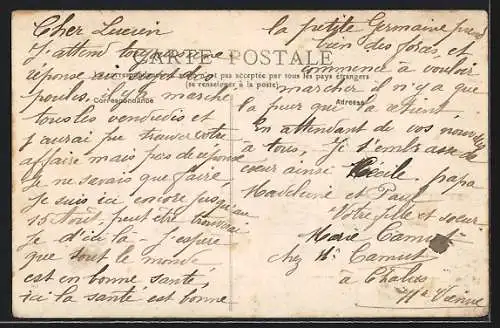 CARTE POSTALE
La correspondance au recto n'est pas acceptée par tous les pays étrangers
(se renseigner à la poste)
Correspondance
Adresse
Cher Lucien
J'attend toujours une
réponse au sujet des
poules, il y a marché
tous les vendredis et
j'aurai pu trouver votre
affaire mais pas de réponse
je ne savais que faire,
je suis ici encore jusqu'au
15 Aout, peut être trouverai
je d'ici là J'espère
que tout le monde
est en bonne santé,
ici la santé est bonne
la petite Germaine prend
bien des forces et
commence à vouloir
marcher il n'y a que
la peur que la retient
En attendant de vos nouvelles
à tous, je t'embrasse de
cœur ainsi Cécile, papa
Madeleine et Paul
Votre fille et sœur
Marie Camut
chez Mr Camut
à Châlus
Hte Vienne